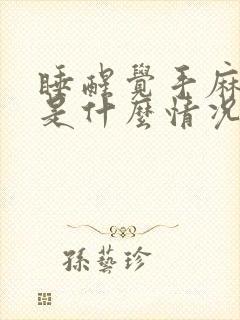 睡醒覺手麻
是什麼情況
孫藝珍